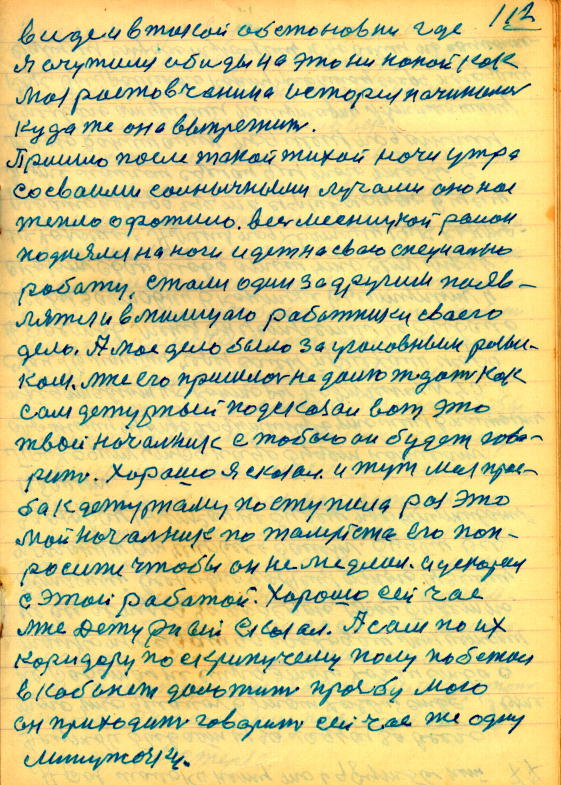 112
видел в такой обстоновки где
я очутился обиды на это ни какой как
моя ростовчанина история начинала
куда же она вытрежит.
Пришло после такой тихой ночи утра
со своими солнычными лучами оно нас
тепло офотило. весь мясницкой район
подняли на ноги идет на свою специално
работу, стали один за другим появ-
лятся в милицию работники своего
дело. А мое дело было за уголовным розы-
ком. мне его пришлос недолго ждат как
сам дежурный подсказал вот это
твой началник с тобою он будет гово-
рит. Хорошо я сказал. и тут моя прос-
ба к дежурному поступила раз это
мой началник по жалуйста его поп-
росите чтобы он не медлил. и ускорил
с этой работой. Хорошо сей час
мне дежурный сказал. А сам по их
коридору по скрипучему полу побежал
в кабинет доложит прозбу мого
он приходит говорит сей час же одну
минуточку.